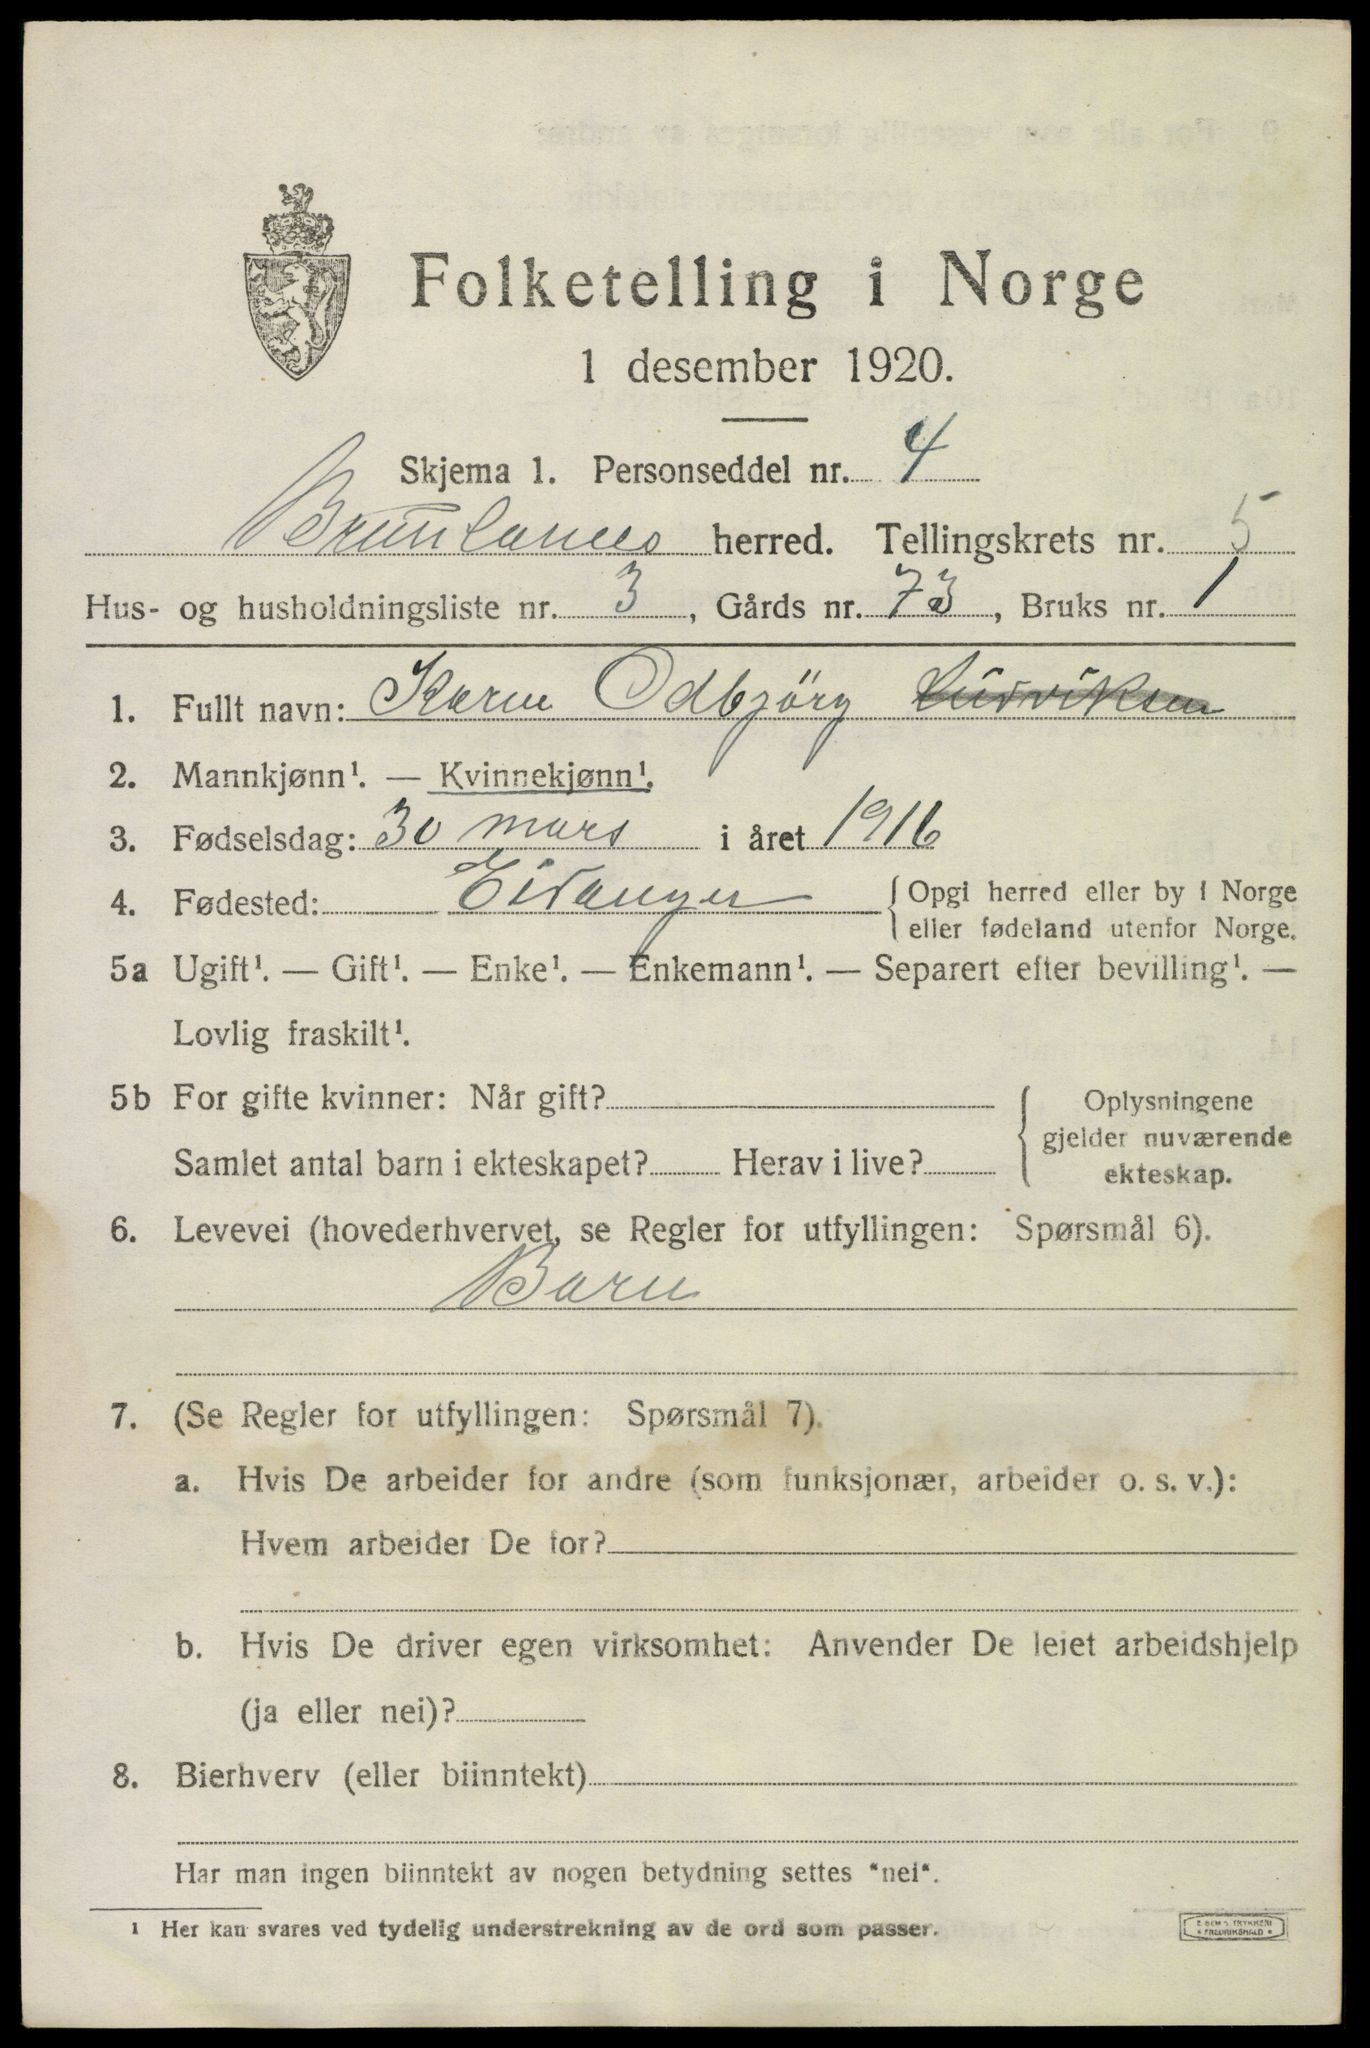 Folketelling i Norge
1 desember 1920.
Skjema 1. Personseddel nr. 4
Brunlanes herred. Tellingskrets nr. 5
Hus- og husholdningsliste nr. 3, Gårds nr. 73, Bruks nr. 1
1. Fullt navn: Karin Odbjörg Ludviksen
2. Mannkjønn¹. — Kvinnekjønn¹.
3. Fødselsdag: 30 mars i året 1916
4. Fødested: Eidanger {Opgi herred eller by i Norge
eller fødeland utenfor Norge.
5a Ugift¹. — Gift¹. — Enke¹. — Enkemann¹. — Separert efter bevilling¹. —
Lovlig fraskilt¹.
5b For gifte kvinner: Når gift? { Oplysningene
gjelder nuværende
Samlet antal barn i ekteskapet? Herav i live? ekteskap.
6. Levevei (hovederhvervet, se Regler for utfyllingen: Spørsmål 6).
Barn
7. (Se Regler for utfyllingen: Spørsmål 7).
a. Hvis De arbeider for andre (som funksjonær, arbeider o. s. v.):
Hvem arbeider De for?
b. Hvis De driver egen virksomhet: Anvender De leiet arbeidshjelp
(ja eller nei)?
8. Bierhverv (eller biinntekt)
Har man ingen biinntekt av nogen betydning settes "nei".
¹ Her kan svares ved tydelig understrekning av de ord som passer.
E. SEM'S TRYKKERI
* FREDRIKSHALD *